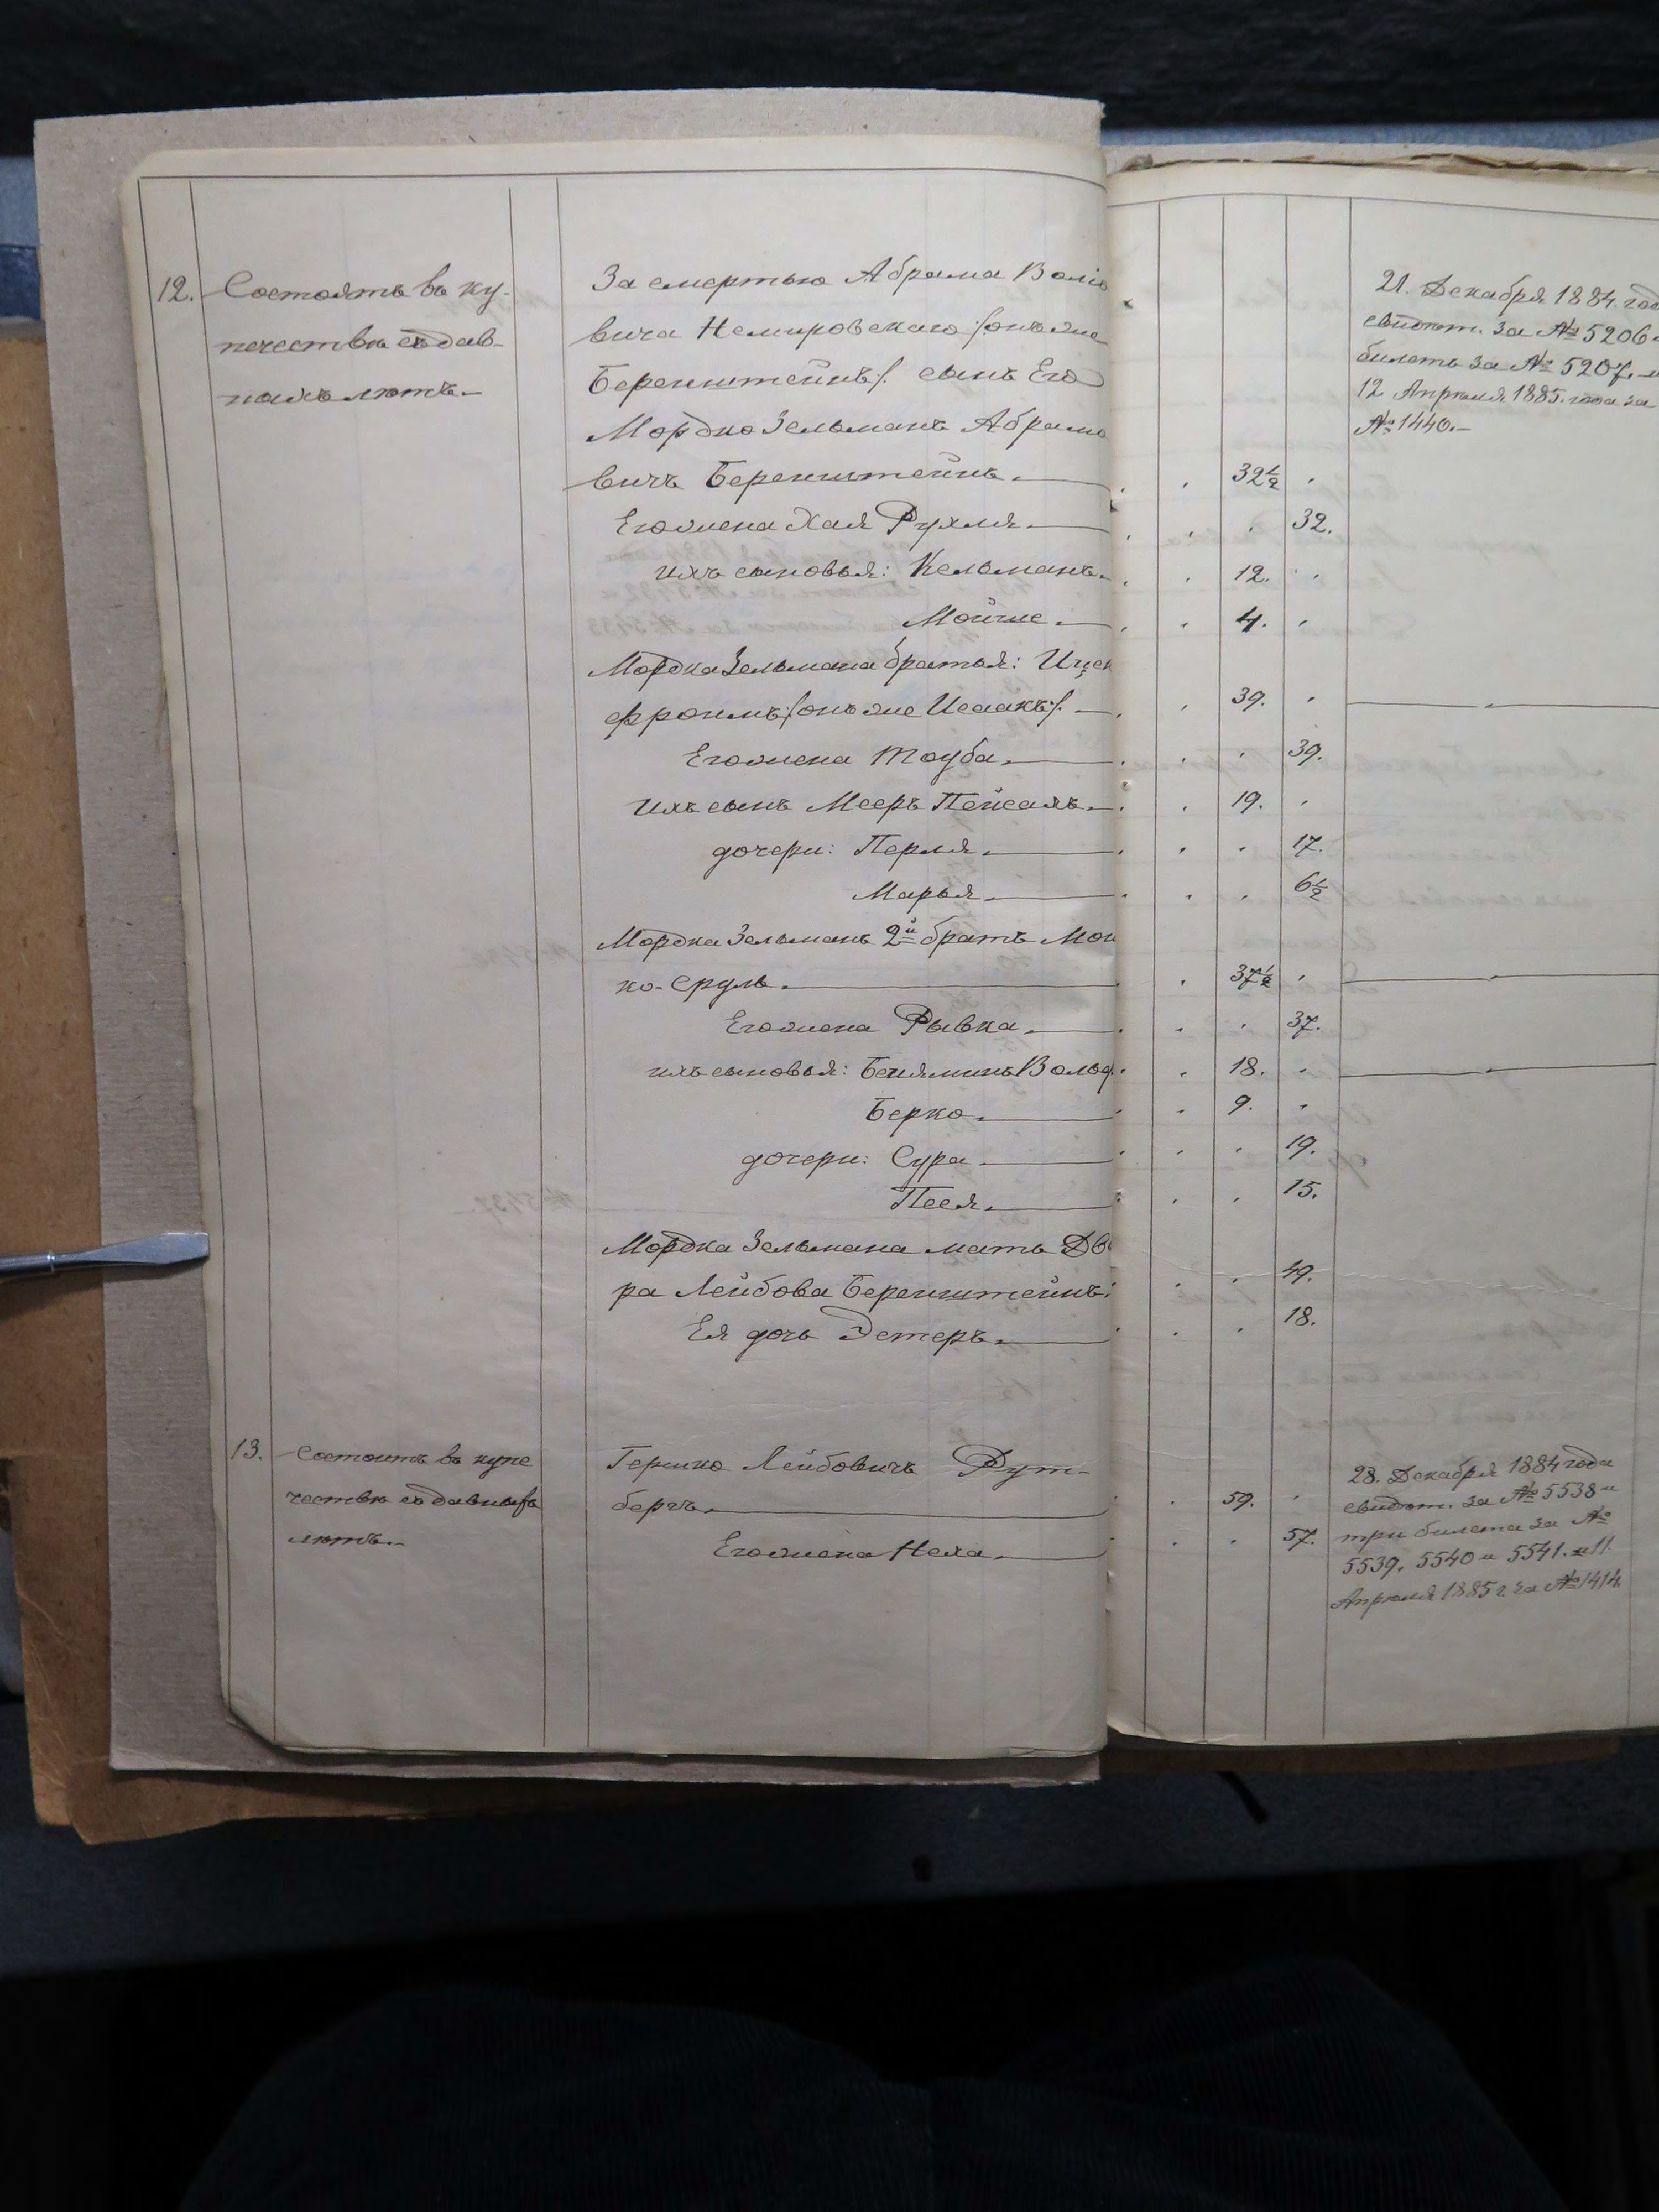 12. Состоятъ въ ку-
печествѣ съ дав-
нихъ лѣтъ.-
За смертью Абрама Воль
вича Немировскаго /:онъ же
Беренштейнъ:/ сынъ Его
Мордко Зельманъ Абрамо
вичъ Беренштейнъ. 32½
Его жена Хая Рухля. 32.
ихъ сыновья: Кельманъ. 12.
Мойше. 4.
Мордка Зельмана братья: Ицек
Фроимъ /:онъ же Исаакъ:/. 39.
Его жена Тауба. 39.
Ихъ сынъ Мееръ Пейсахъ. 19.
дочери: Перля. 17.
Марья. 6½
Мордка Зельманъ 2й братъ Мош
ко-Сруль. 37½
Его жена Рывка. 37.
ихъ сыновья: Беняминъ Волоф. 18.
Берко. 9.
дочери: Сура. 19.
Песя. 15.
Мордка Зельмана мать Дво
ра Лейбова Беренштейнъ: 49.
Ея дочь Эстеръ. 18.
21. Декабря 1884. год
свидѣт. за № 5206.
билетъ за № 5207. и
12 Апрѣля 1885. года за
№ 1440.-
13. Состоитъ въ купе
чествѣ съ давныхъ
лѣтъ.-
Гершко Лейбовичъ Рут-
бергъ. 59.
Его жена Неха. 57.
28. Декабря 1884 года
свидѣт. за № 5538 и
три билета за №
5539, 5540 и 5541. и 11.
Апрѣля 1885 г. за № 1414.